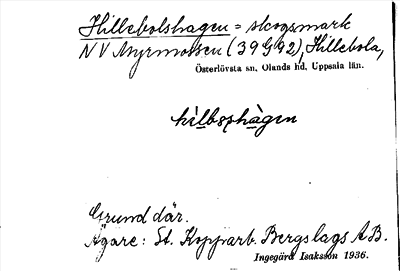 Hillebolshagen = skogsmark
NV Myrmossen (39G92), Hillebola,
Österlövsta sn, Olands hd, Uppsala län.
hìlbshàgen
Grund där.
Ägare: St. Kopparb. Bergslags AB.
Ingegärd Isaksson 1936.